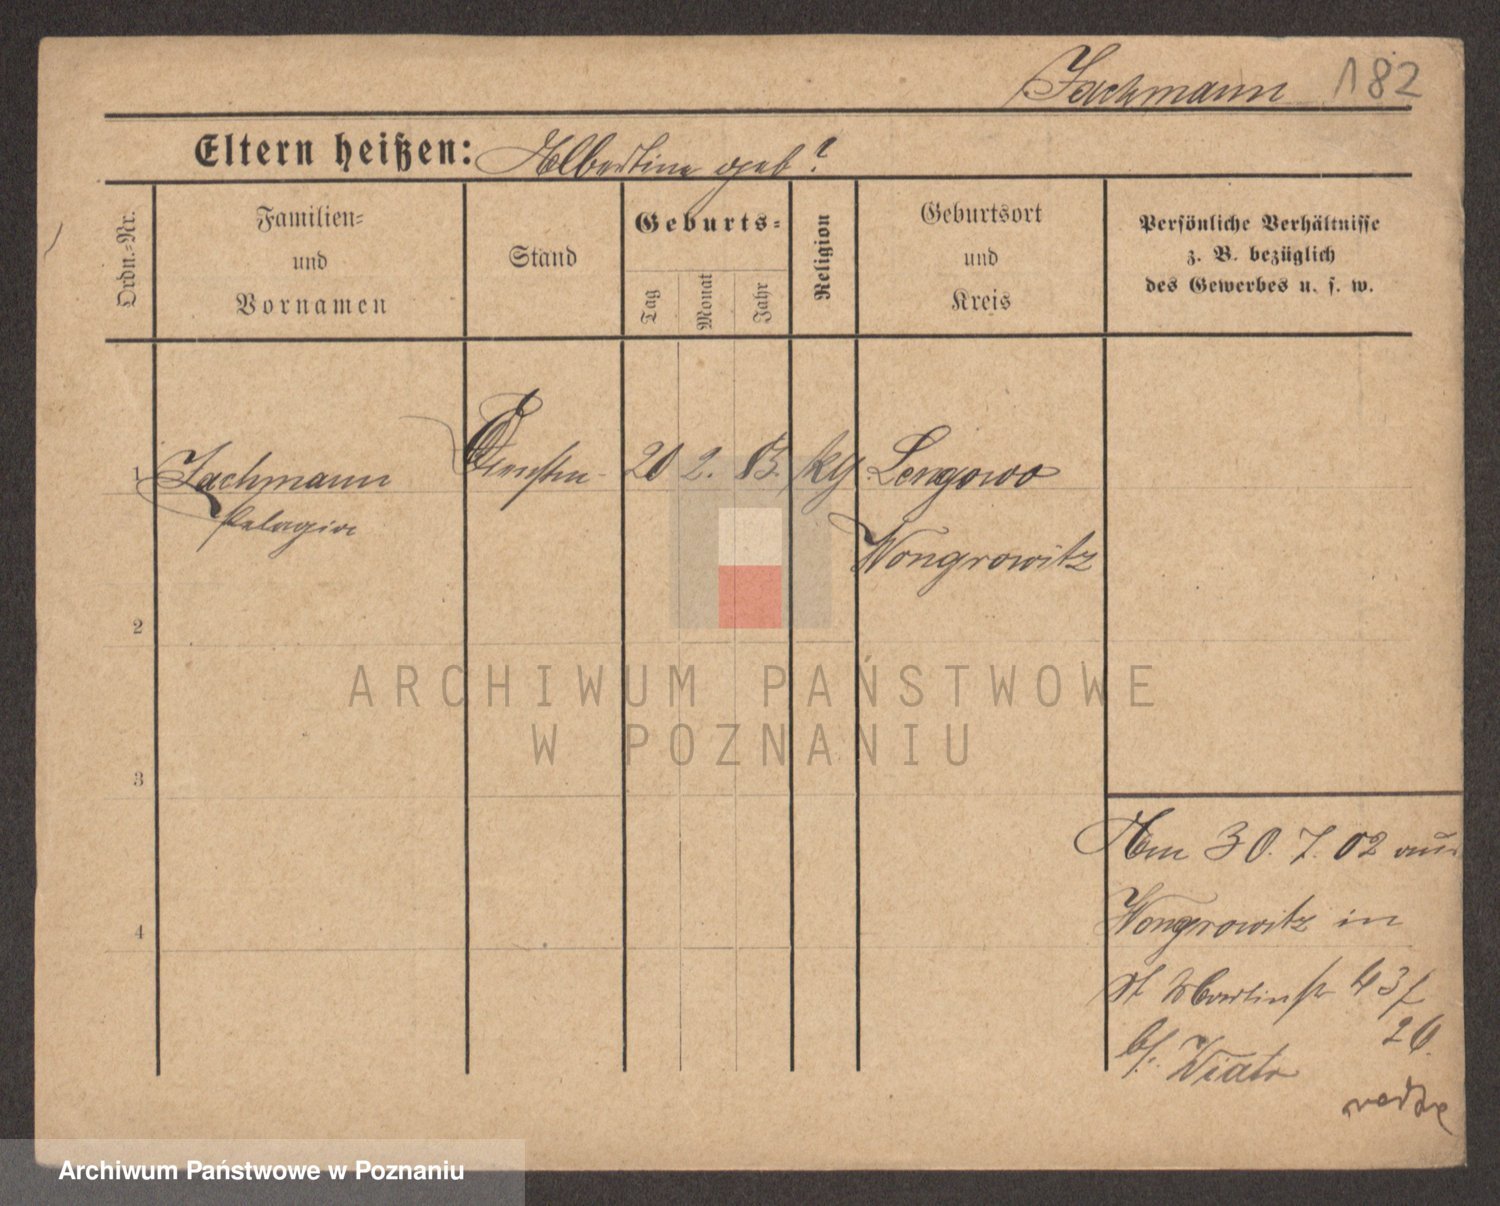 Jachmann 182
Eltern heißen: Albertine geb?
Ordn.=Nr.
Familien=
und
Vornamen
Stand
Geburts=
Tag
Monat
Jahr
Religion
Geburtsort
und
Kreis
Persönliche Verhältnisse
z. B. bezüglich
des Gewerbes u. s. w.
1 Jachmann 20 2. 83. Lengowo
Pelagia
Wongrowitz
2
3
4
Am 30. 7. 02 aus
Wongrowitz in
St Martinstr 43
26.
b/. Wiatr
ARCHIWUM PAŃSTWOWE
W POZNANIU
Archiwum Państwowe w Poznaniu